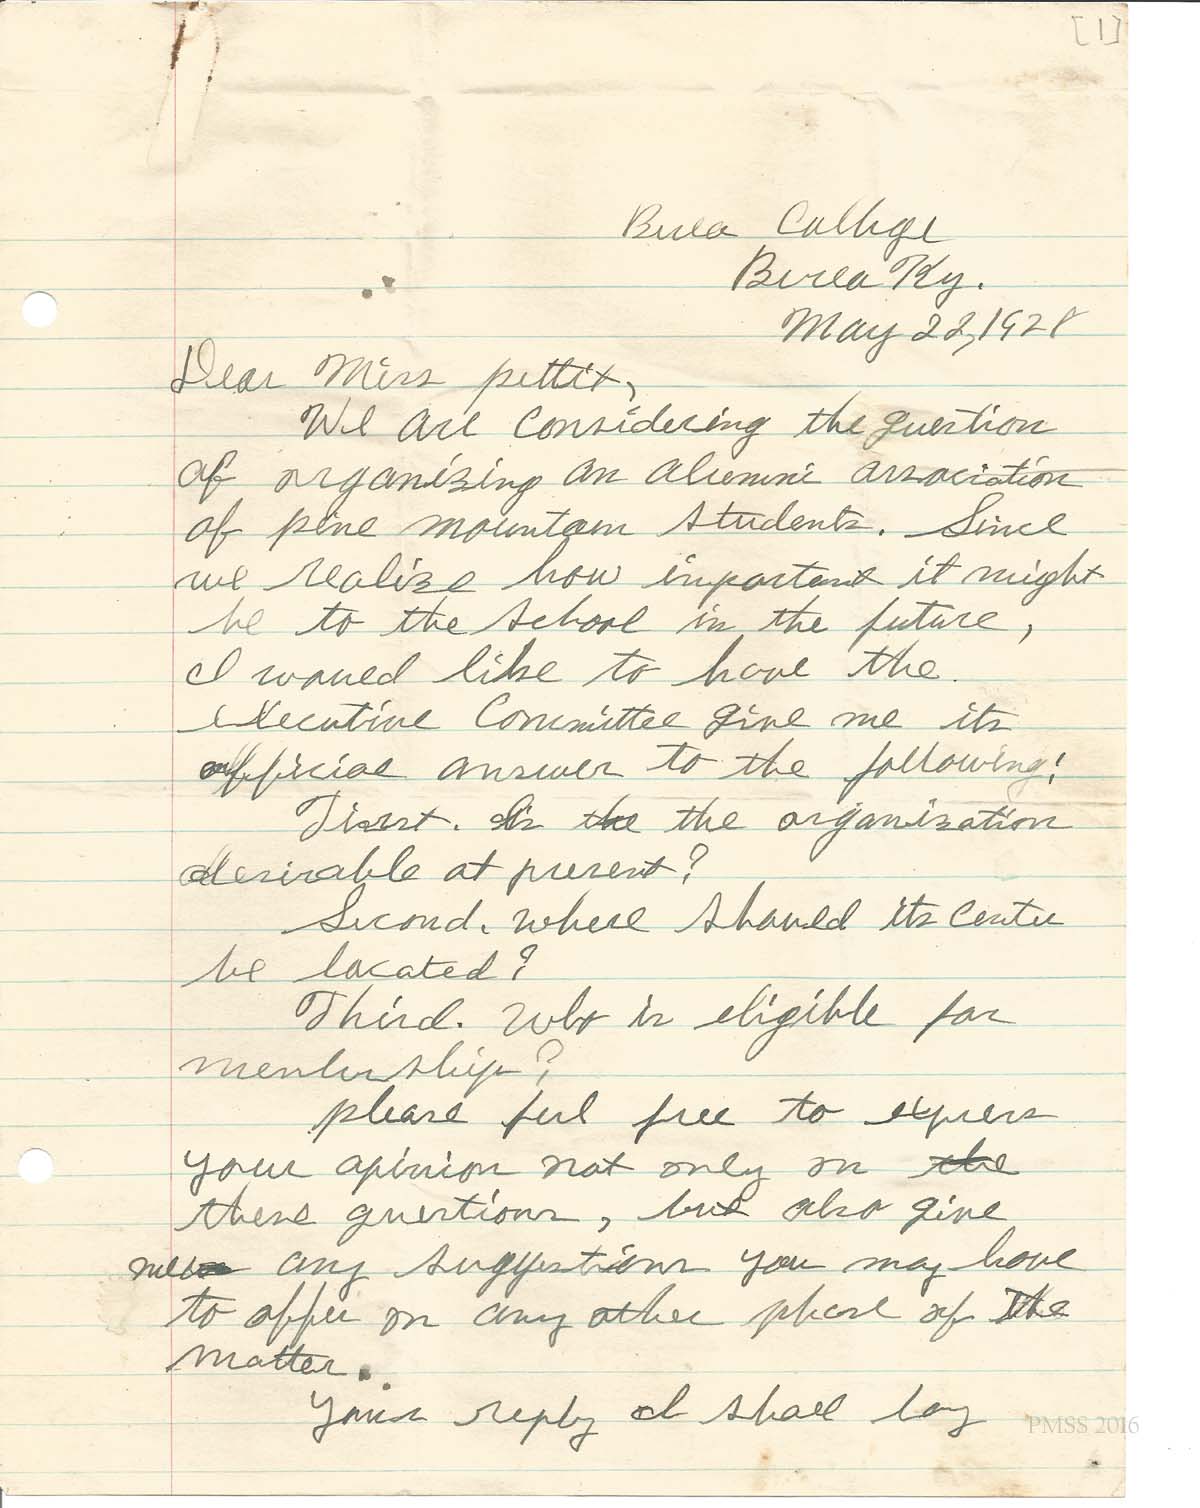 [1]
Berea College
Berea Ky.
May 22, 1928
Dear Miss pettit,
We are considering the question
of organizing an alumni association
of pine mountain students. Since
we realize how important it might
be to the school in the future,
I would like to have the
executive Committee give me its
official answer to the following:
First. Is the the organization
desirable at present?
Second. where should its center
be located?
Third. who is eligible for
membership?
please feel free to express
your opinion not only on the
these questions, but also give
me any suggestions you may have
to offer on any other phase of the
matter.
Your reply I shall lay
PMSS 2016